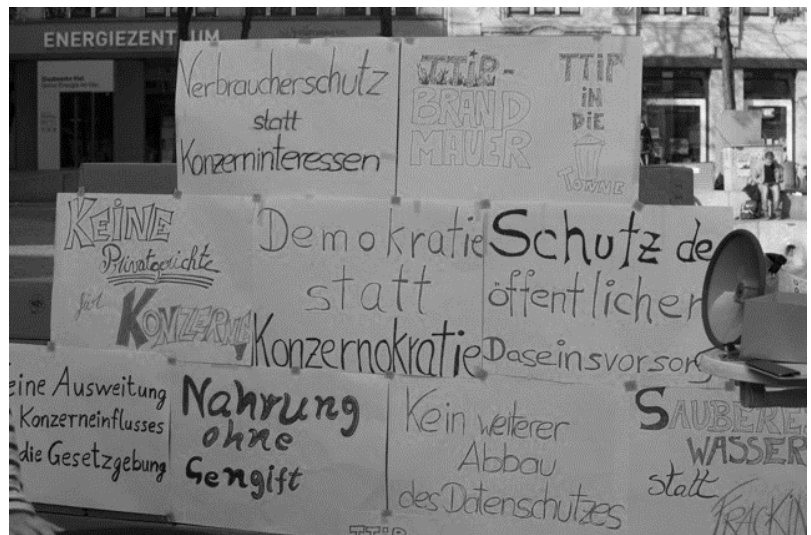 ENERGIEZENTRUM
Stadtwerke Kiel
Verbraucherschutz
statt
Konzerninteressen
TTIP-
BRAND
MAUER
TTIP
IN
DIE
TONNE
KEINE
Privatgerichte
für
KONZERNE
Demokratie
statt
Konzernokratie
Schutz de
öffentlicher
Daseinsvorsorg
eine Ausweitung
Konzerneinflusses
die Gesetzgebung
Nahrung
ohne
Gengift
Kein weiterer
Abbau
des Datenschutzes
SAUBERE
WASSER
statt
FRACKIN
TTIP